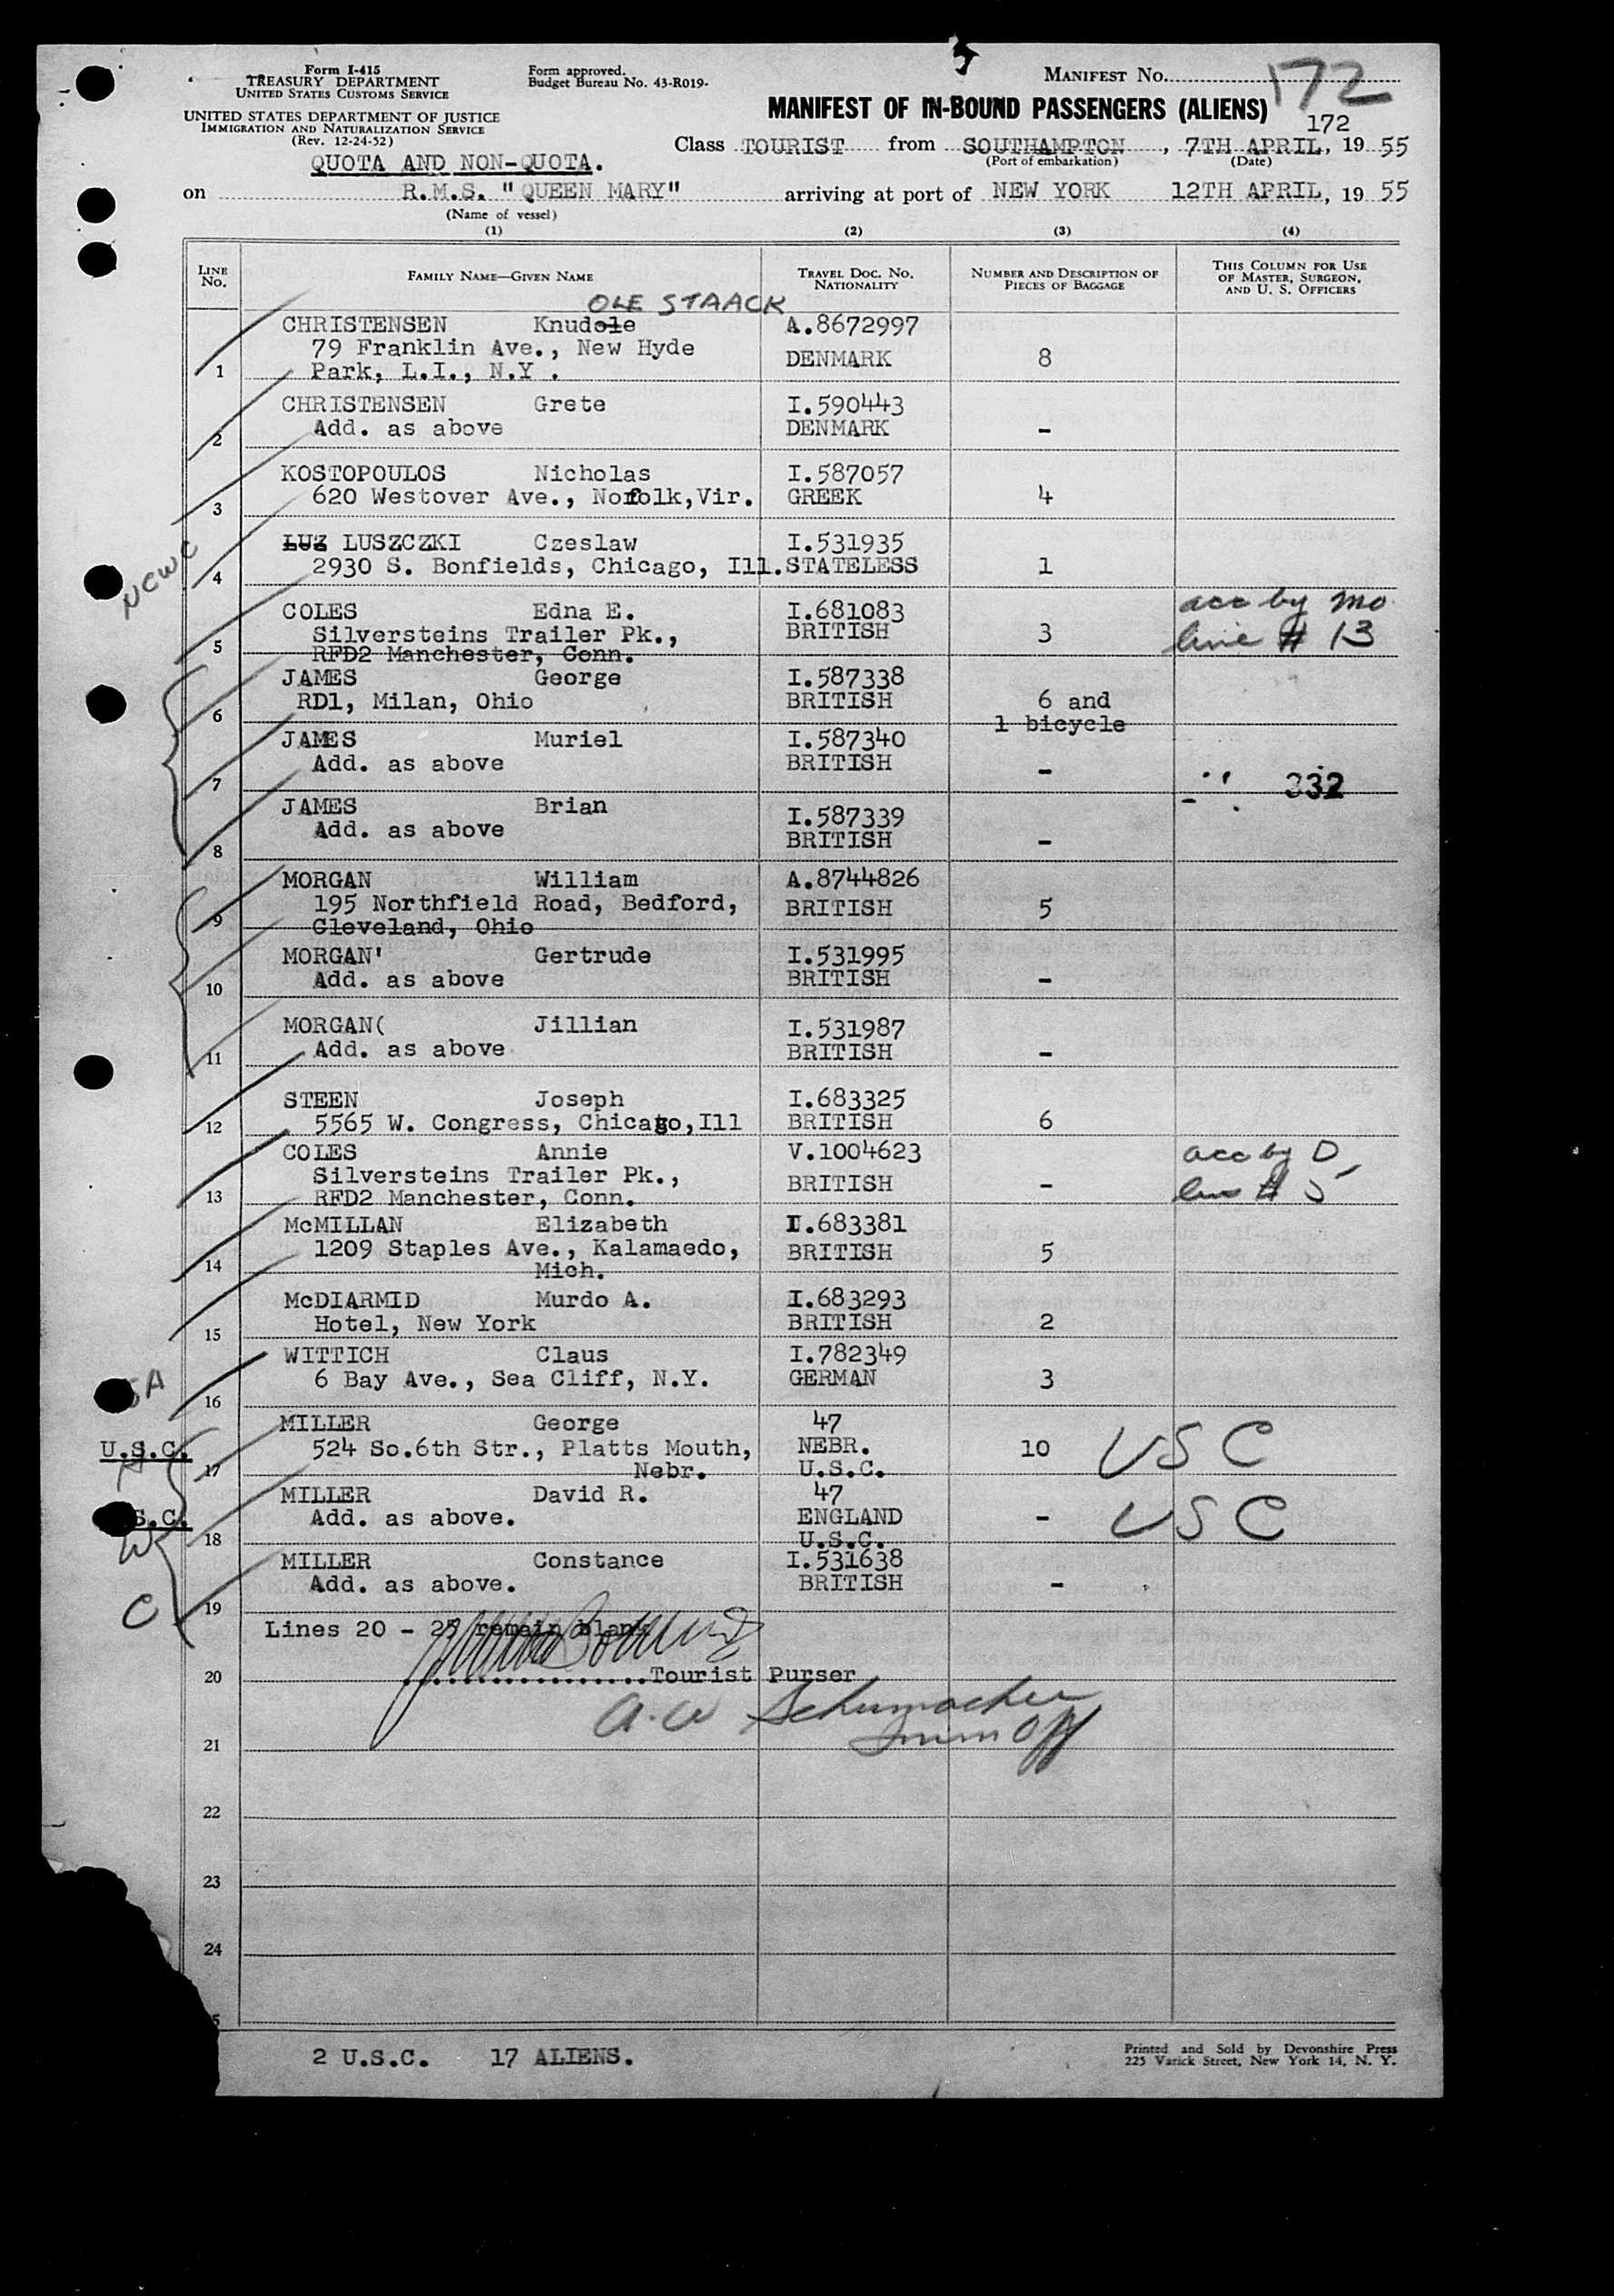 Form I-415
TREASURY DEPARTMENT
UNITED STATES CUSTOMS SERVICE
UNITED STATES DEPARTMENT OF JUSTICE
IMMIGRATION AND NATURALIZATION SERVICE
(Rev. 12-24-52)
QUOTA AND NON-QUOTA.
Form approved.
Budget Bureau No. 43-R019-
MANIFEST No. 172
MANIFEST OF IN-BOUND PASSENGERS (ALIENS)
172
Class TOURIST from SOUTHAMPTON, 7TH APRIL, 1955
(Port of embarkation) (Date)
on R.M.S. "QUEEN MARY" arriving at port of NEW YORK 12TH APRIL, 1955
(Name of vessel)
(1) (2) (3) (4)
LINE No. FAMILY NAME—GIVEN NAME TRAVEL DOC. No. NATIONALITY NUMBER AND DESCRIPTION OF PIECES OF BAGGAGE THIS COLUMN FOR USE OF MASTER, SURGEON, AND U. S. OFFICERS
OLE STAACK
CHRISTENSEN Knudole A.8672997
79 Franklin Ave., New Hyde DENMARK 8
1 Park, L.I., N.Y .
CHRISTENSEN Grete I.590443
2 Add. as above DENMARK -
KOSTOPOULOS Nicholas I.587057
3 620 Westover Ave., Norfolk,Vir. GREEK 4
NEWC
LUZ LUSZCZKI Czeslaw I.531935
4 2930 S. Bonfields, Chicago, Ill. STATELESS 1
COLES Edna E. I.681083 acc by Mo
Silversteins Trailer Pk., BRITISH 3 line # 13
5 RFD2 Manchester, Conn.
JAMES George I.587338
6 RD1, Milan, Ohio BRITISH 6 and
1 bicycle
JAMES Muriel I.587340
7 Add. as above BRITISH - 332
JAMES Brian I.587339
8 Add. as above BRITISH -
MORGAN William A.8744826
9 195 Northfield Road, Bedford, BRITISH 5
Cleveland, Ohio
MORGAN' Gertrude I.531995
10 Add. as above BRITISH -
MORGAN( Jillian I.531987
11 Add. as above BRITISH -
STEEN Joseph I.683325
12 5565 W. Congress, Chicago,Ill BRITISH 6
COLES Annie V.1004623 acc by D
Silversteins Trailer Pk., BRITISH - line # 5
13 RFD2 Manchester, Conn.
McMILLAN Elizabeth I.683381
14 1209 Staples Ave., Kalamaedo, BRITISH 5
Mich.
McDIARMID Murdo A. I.683293
15 Hotel, New York BRITISH 2
WITTICH Claus I.782349
16 6 Bay Ave., Sea Cliff, N.Y. GERMAN 3
MILLER George 47
U.S.C. 524 So.6th Str., Platts Mouth, NEBR. 10 USC
17 Nebr. U.S.C.
MILLER David R. 47
S.C. Add. as above. ENGLAND - USC
18 U.S.C.
W
MILLER Constance I.531638
Add. as above. BRITISH -
C 19
Lines 20 - 25 remain blank
20 Tourist Purser
A.W Schumacher
Imm Off
21
22
23
24
5
2 U.S.C. 17 ALIENS.
Printed and Sold by Devonshire Press
225 Varick Street, New York 14, N. Y.